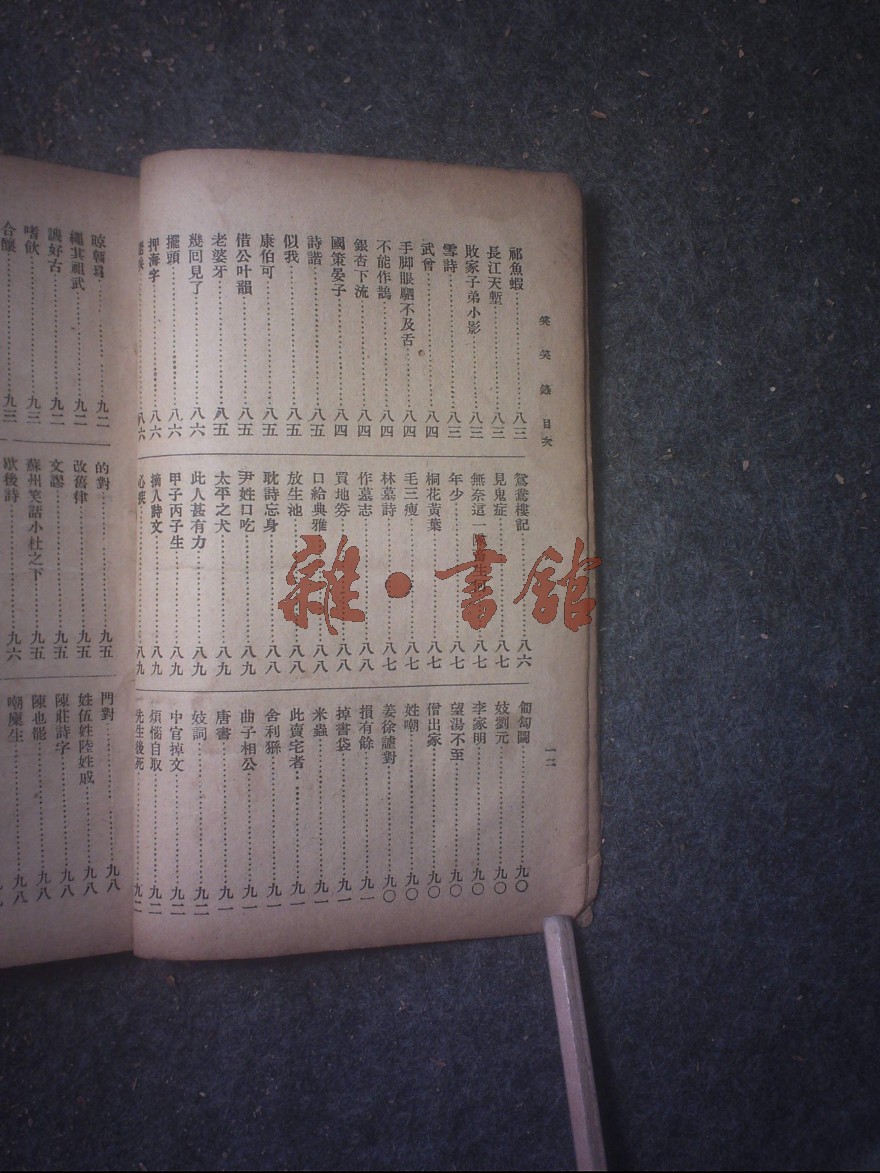 笑笑錄 目次
一二
祁魚蝦……八三
長江天塹……八三
敗家子弟小影……八三
雪詩……八三
武曾……八四
手脚眼廼不及舌……八四
不能作鴣……八四
銀杏下流……八四
國策晏子……八四
詩諧……八五
似我……八五
康伯可……八五
借公叶韻……八五
老婆牙……八五
幾回見了……八六
擺頭……八六
押海字……八六
八六
鴛鴦樓記……八六
見鬼症……八七
無奈這一……八七
年少……八七
桐花黃葉……八七
毛三瘦……八七
林墓詩……八七
作墓志……八八
買地劵……八八
口給典雅……八八
放生池……八八
耽詩忘身……八八
尹姓口吃……八九
太平之犬……八九
此人甚有力……八九
甲子丙子生……八九
摘人詩文……八九
心疾……八九
匍匐圖……九〇
妓劉元……九〇
李家明……九〇
望湯不至……九〇
僧出家……九〇
姓嘲……九〇
姜徐謔對……九〇
損有餘……九一
掉書袋……九一
米蟲……九一
此賣宅者……九一
舍利猻……九一
曲子相公……九一
唐書……九一
妓詞……九二
中官掉文……九二
煩惱自取……九二
先生後死……九二
九二
繩其祖武……九二
譏好古……九二
嗜飲……九三
合釀……九三
的對……九五
改舊律……九五
文謬……九五
蘇州笑話小杜之下……九五
歇後詩……九六
門對……九八
姓伍姓陸姓戚……九八
陳莊詩字……九八
陳也罷……九八
嘲廩生……九八
雜·書館